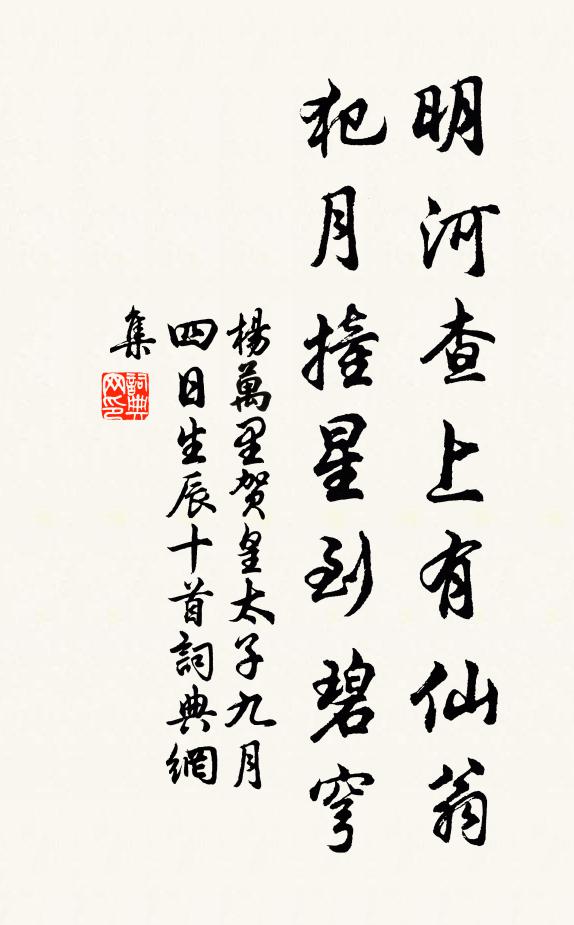 明河查上有仙翁
犯月撞星到碧穹
楊萬里賀皇太子九月
四日生辰十首詞典網
集
詞典
网印